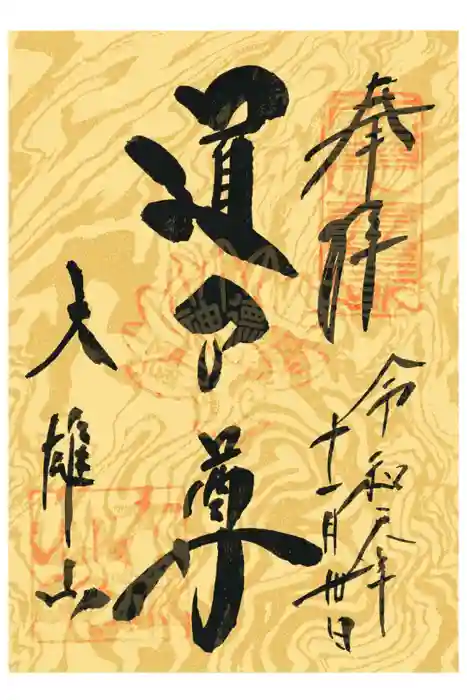 奉拝
令和元年
十一月卅日
道了尊
大雄山